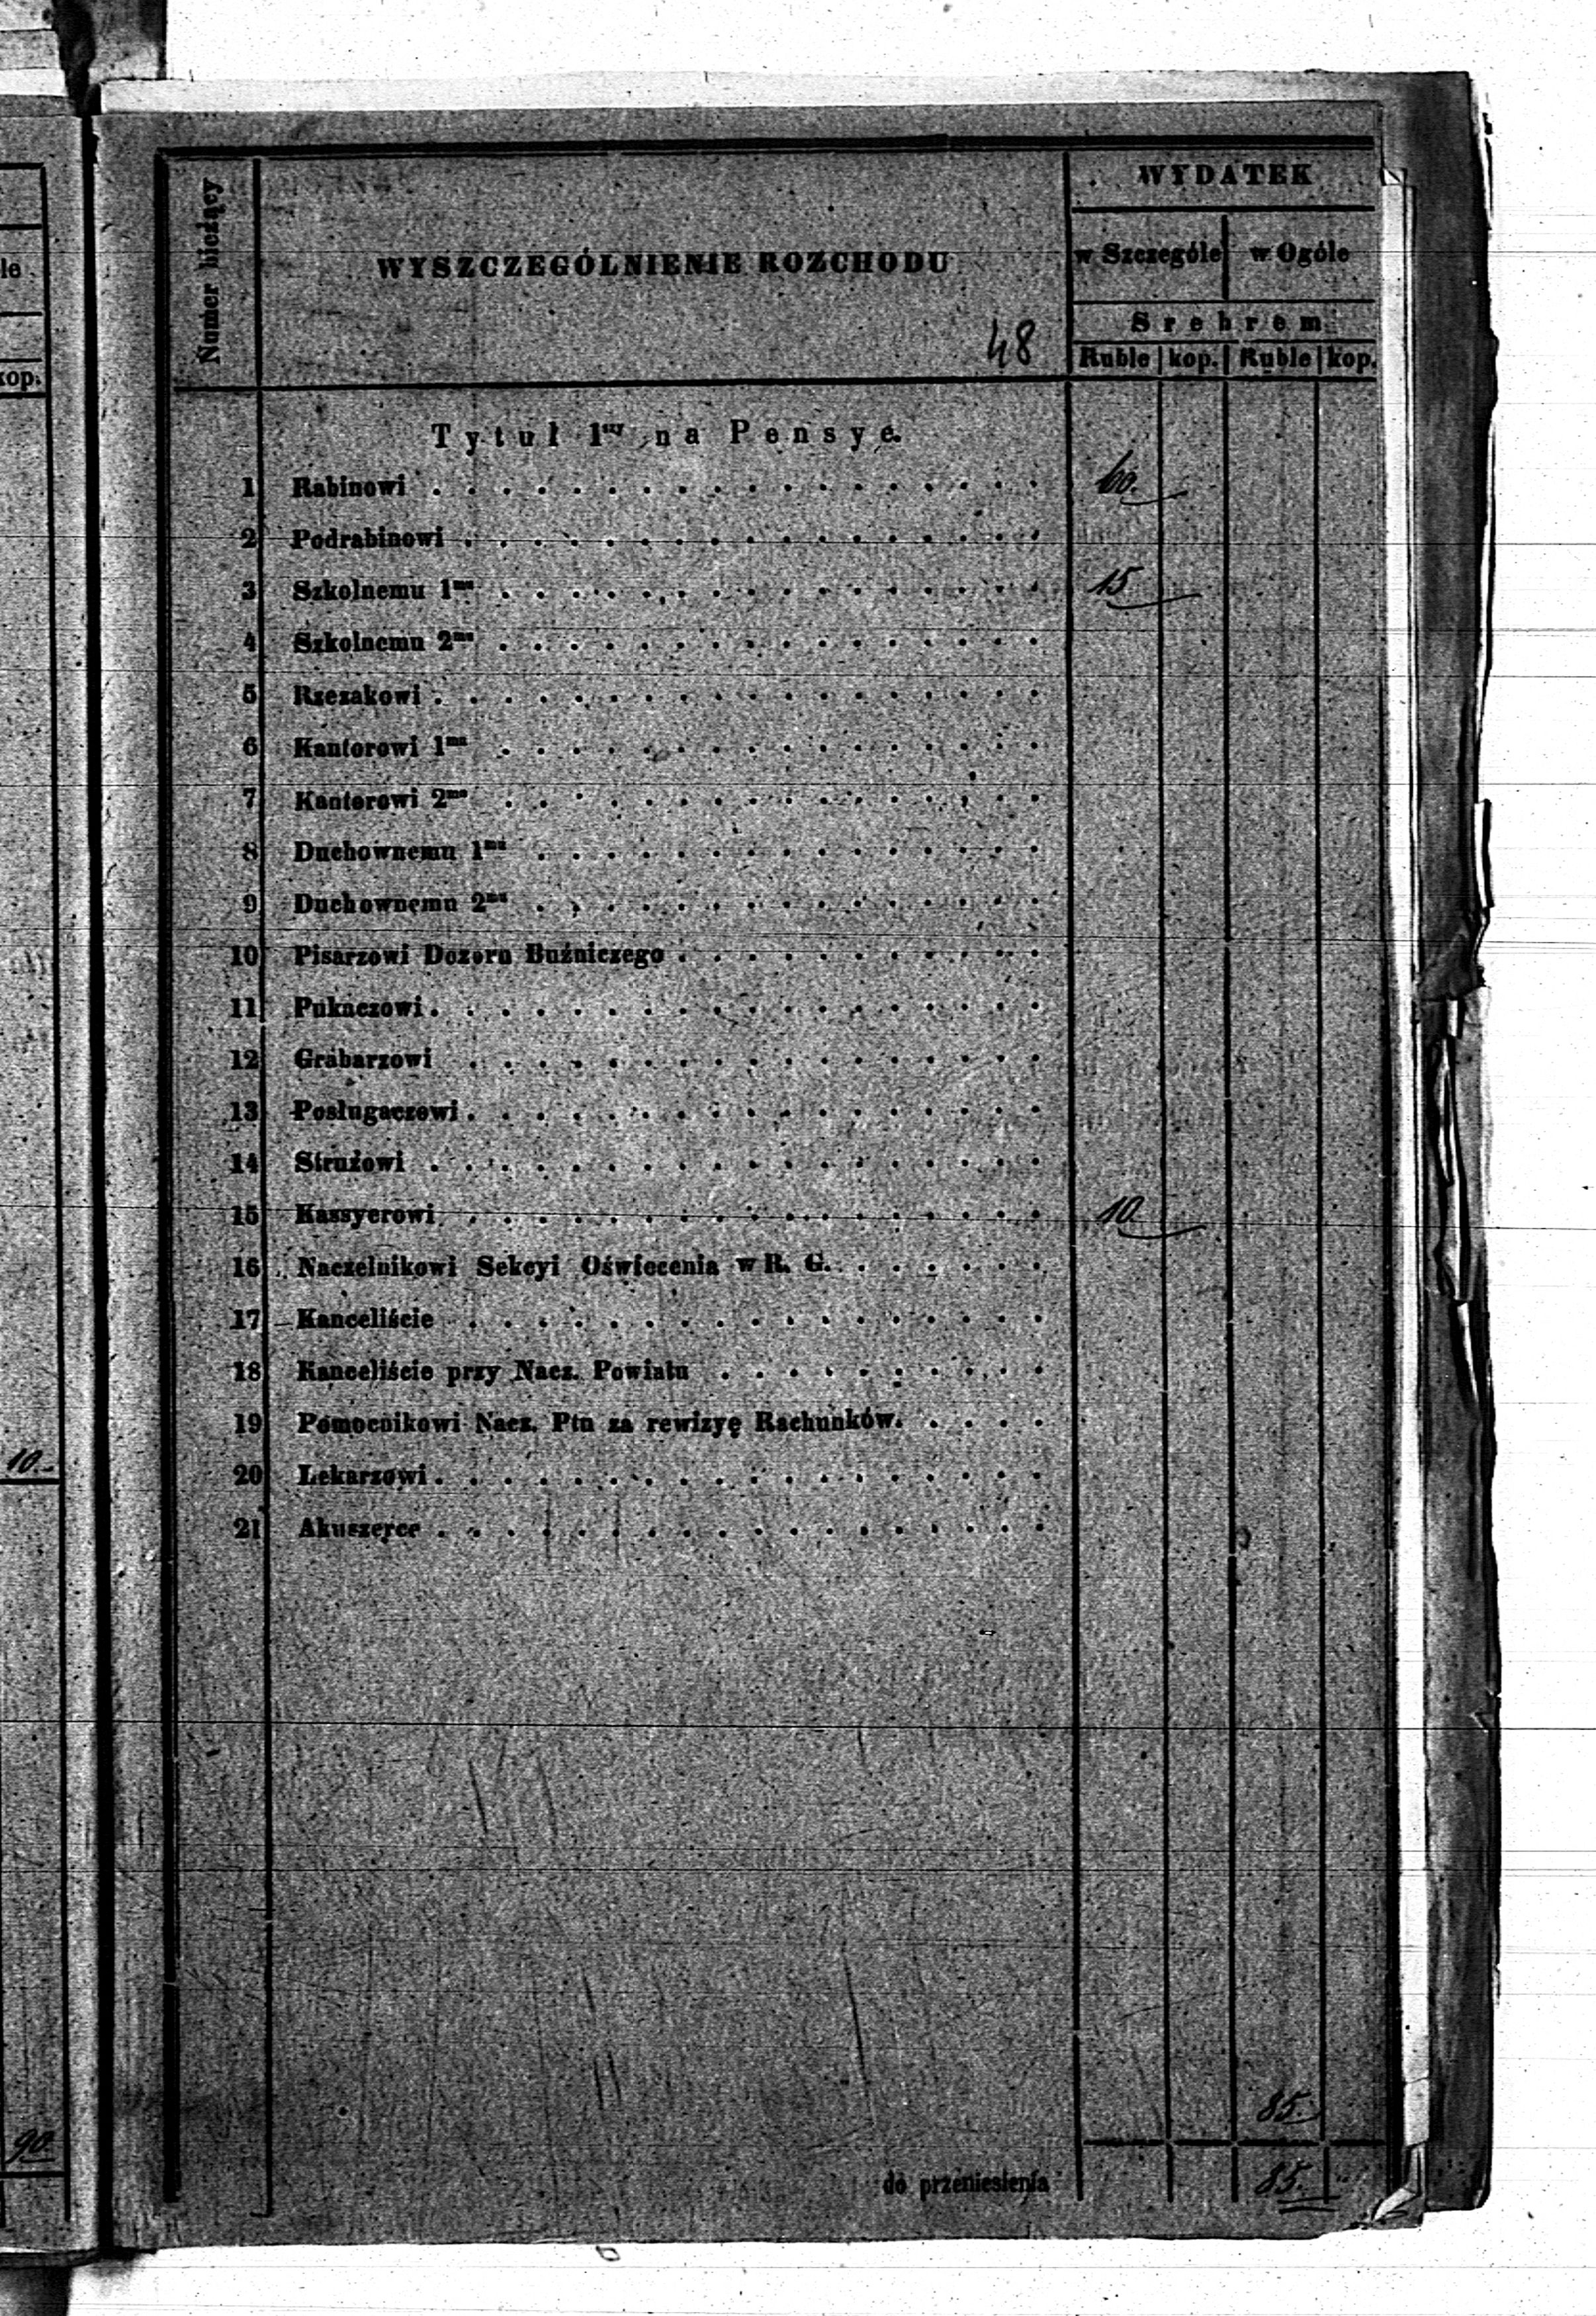 Numer bieżący
WYSZCZEGÓLNIENIE ROZCHODU
48
WYDATEK
w Szczególe w Ogóle
Srebrem
Ruble kop. Ruble kop.
Tytuł 1szy na Pensye.
1 Rabinowi . . . . . . . . . . . . . . . . . . 60.
2 Podrabinowi . . . . . . . . . . . . . . . . .
3 Szkolnemu 1mu . . . . . . . . . . . . . . . . 15
4 Szkolnemu 2mu . . . . . . . . . . . . . . . .
5 Rzezakowi . . . . . . . . . . . . . . . . . .
6 Kantorowi 1mu . . . . . . . . . . . . . . . .
7 Kantorowi 2mu . . . . . . . . . . . . . . . .
8 Duchownemu 1mu . . . . . . . . . . . . . . .
9 Duchownemu 2mu . . . . . . . . . . . . . . .
10 Pisarzowi Dozoru Buźniczego . . . . . . . . . . .
11 Pukaczowi . . . . . . . . . . . . . . . . . .
12 Grabarzowi . . . . . . . . . . . . . . . . .
13 Posługaczowi . . . . . . . . . . . . . . . . .
14 Strużowi . . . . . . . . . . . . . . . . . .
15 Kassyerowi . . . . . . . . . . . . . . . . . 10
16 Naczelnikowi Sekcyi Oświecenia w R. G. . . . . . .
17 Kanceliście . . . . . . . . . . . . . . . . .
18 Kanceliście przy Nacz. Powiatu . . . . . . . . . .
19 Pomocnikowi Nacz. Ptu za rewizyę Rachunków. . . . .
20 Lekarzowi . . . . . . . . . . . . . . . . . .
21 Akuszerce . . . . . . . . . . . . . . . . . .
85.
do przeniesienia 85.
le
kop.
10.
90.